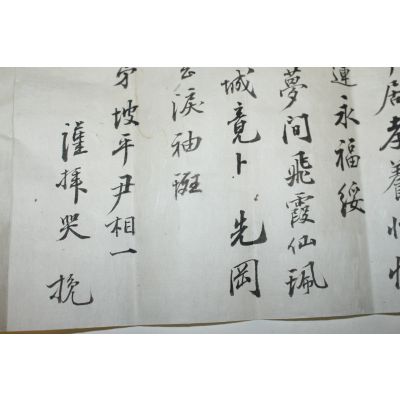 居孝養
永福綏
夢間飛霞仙珮
城竟卜先岡
淚袖斑
坡平尹相一
謹拜哭挽